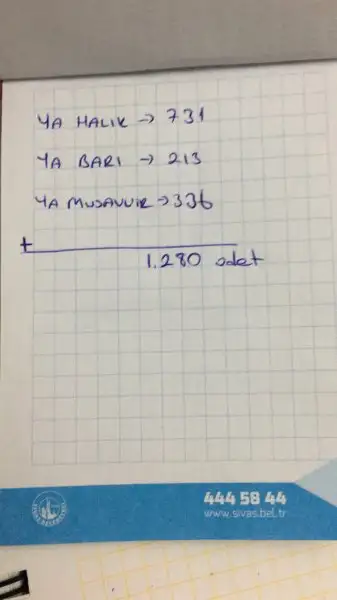 YA HALIK → 731
YA BARI → 213
YA MUSAVVIR → 336
+
1.280 adet
444 58 44
www.sivas.bel.tr